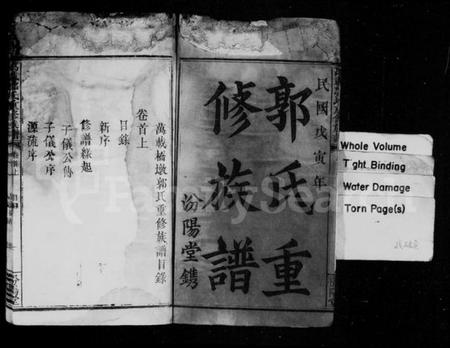 民國戊寅年
郭氏重
修族譜
汾陽堂鐫
萬載橋墩郭氏重修族譜目錄
卷首上
目錄
新序
修譜緣起
子儀公傳
子儀公序
源流序
Whole Volume
Tight Binding
Water Damage
Torn Page(s)
FamilySearch